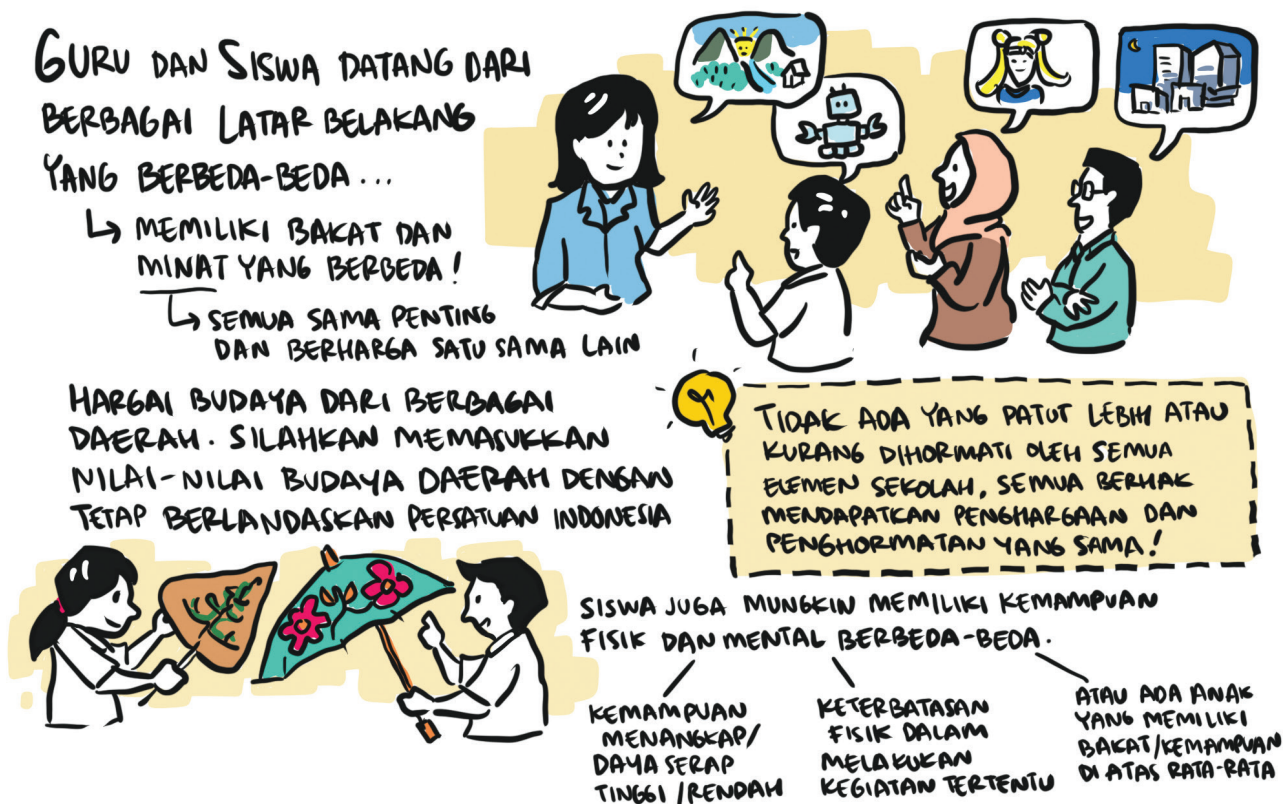 GURU DAN SISWA DATANG DARI
BERBAGAI LATAR BELAKANG
YANG BERBEDA-BEDA...
MEMILIKI BAKAT DAN
MINAT YANG BERBEDA!
SEMUA SAMA PENTING
DAN BERHARGA SATU SAMA LAIN
HARGAI BUDAYA DARI BERBAGAI
DAERAH. SILAHKAN MEMASUKKAN
NILAI-NILAI BUDAYA DAERAH DENGAN
TETAP BERLANDASKAN PERSATUAN INDONESIA
TIDAK ADA YANG PATUT LEBIH ATAU
KURANG DIHORMATI OLEH SEMUA
ELEMEN SEKOLAH, SEMUA BERHAK
MENDAPATKAN PENGHARGAAN DAN
PENGHORMATAN YANG SAMA!
SISWA JUGA MUNGKIN MEMILIKI KEMAMPUAN
FISIK DAN MENTAL BERBEDA-BEDA.
KEMAMPUAN
MENANGKAP/
DAYA SERAP
TINGGI/RENDAH
KETERBATASAN
FISIK DALAM
MELAKUKAN
KEGIATAN TERTENTU
ATAU ADA ANAK
YANG MEMILIKI
BAKAT/KEMAMPUAN
DI ATAS RATA-RATA